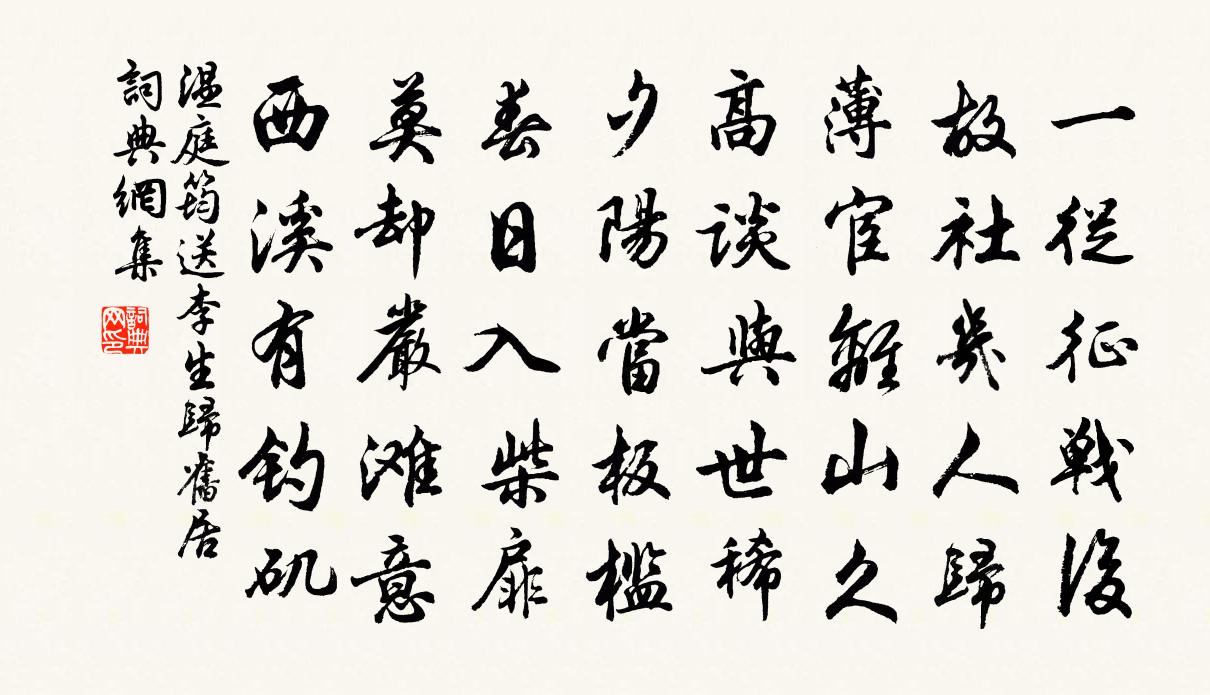 一從征戰後
故社幾人歸
薄宦離山久
高談與世稀
夕陽當板檻
春日入柴扉
莫却嚴滩意
西溪有釣矶
溫庭筠送李生歸舊居
詞典網集
詞典网印